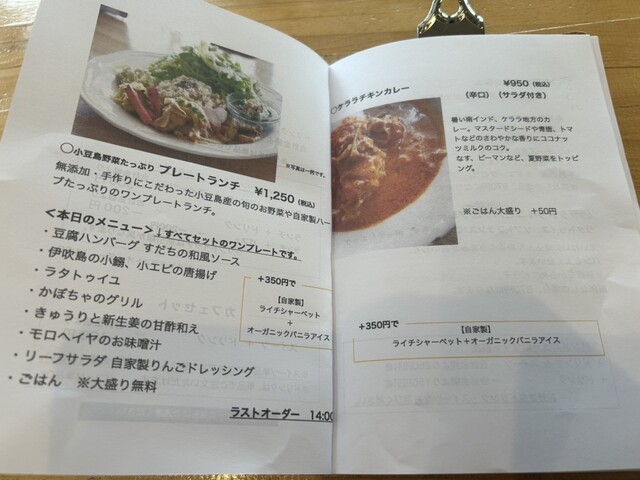 ※写真は一例です。
〇小豆島野菜たっぷり プレートランチ ¥1,250 (税込)
無添加・手作りにこだわった小豆島産の旬のお野菜や自家製ハー
ブたっぷりのワンプレートランチ。
<本日のメニュー>↓すべてセットのワンプレートです。
・豆腐ハンバーグ すだちの和風ソース
・伊吹島の小鰯、小エビの唐揚げ
・ラタトゥイユ
・かぼちゃのグリル
・きゅうりと新生姜の甘酢和え
・モロヘイヤのお味噌汁
・リーフサラダ 自家製りんごドレッシング
・ごはん ※大盛り無料
+350円で
【自家製】
ライチシャーベット
+
オーガニックバニラアイス
ラストオーダー 14:00
〇ケララチキンカレー
¥950 (税込)
(辛口) (サラダ付き)
暑い南インド、ケララ地方のカ
レー。マスタードシードや青唐、トマ
トなどのさわやかな香りにココナッ
ツミルクのコク。
なす、ピーマンなど、夏野菜をトッピ
ング。
※ごはん大盛り +50円
+350円で
【自家製】
ライチシャーベット+オーガニックバニラアイス